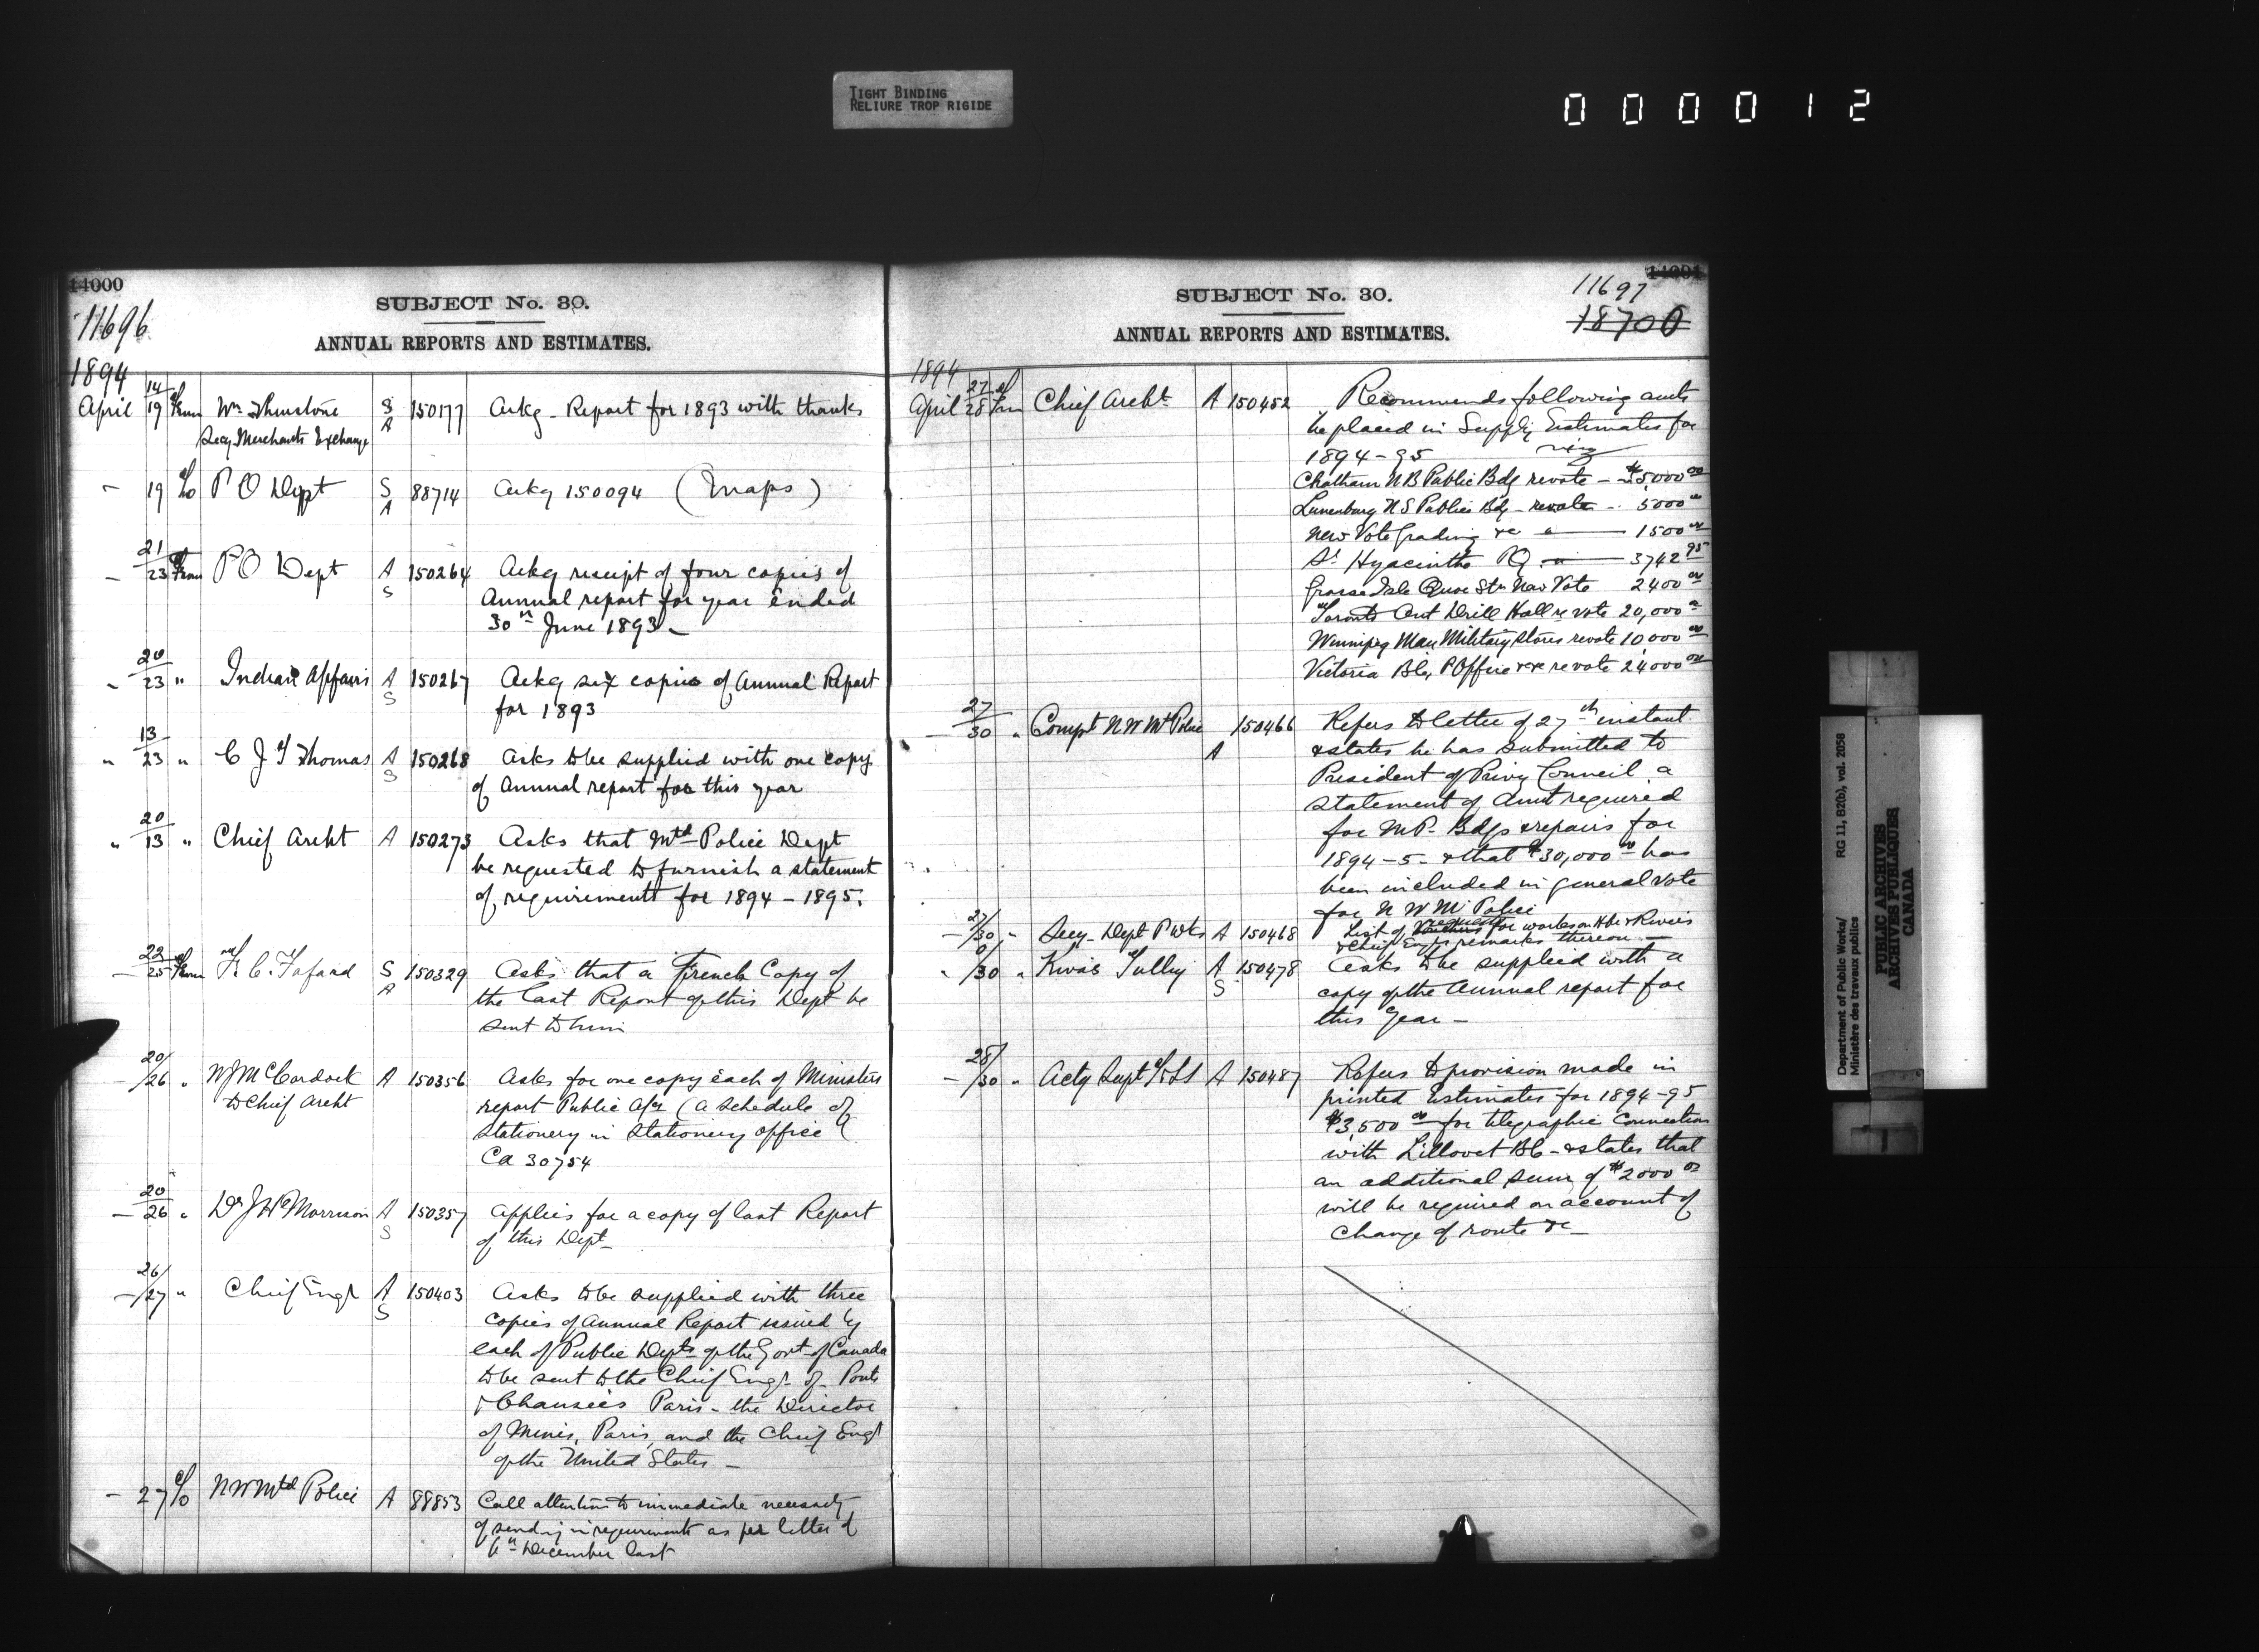 TIGHT BINDING
RELIURE TROP RIGIDE
000012
14000
11696
SUBJECT No. 30.
ANNUAL REPORTS AND ESTIMATES.
1894
April 14/19 From Wm Thurstone S A 150177 Ackg - Report for 1893 with thanks
Secy Merchants Exchange
- 19 To P O Dept S A 88714 Ackg 150094 (Maps)
- 21/23 From P O Dept A S 150264 Ackg receipt of four copies of
Annual report for year ended
30th June 1893 -
" 20/23 " Indian Affairs A S 150267 Ackg six copies of Annual Report
for 1893
" 13/23 " C J T Thomas A S 150268 Asks to be supplied with one copy
of Annual report for this year
" 20/13 " Chief Archt A 150273 Asks that Mtd Police Dept
be requested to furnish a statement
of requirements for 1894 - 1895.
- 22/25 From F. C. Fafard S A 150329 Asks that a French Copy of
the last Report of this Dept be
sent to him
- 20/26 " W J McCordock A 150356 Asks for one copy each of Ministers
to Chief Archt report Public (a schedule of
Stationery in Stationery office
Ca 30754
- 20/26 " Dr J Morrison A S 150357 Applies for a copy of last Report
of this Dept -
- 26/27 " Chief Engr A S 150403 Asks to be supplied with three
copies of Annual Report issued by
each of Public Depts of the Govt of Canada
to be sent to the Chief Engr of Ponts
& Chausées Paris - the Director
of Mines, Paris, and the Chief Engr
of the United States -
- 27 To N W Mtd Police A 88853 Call attention to immediate necessity
of sending in requirements as per letter of
December last
14001
11697
18700
SUBJECT No. 30.
ANNUAL REPORTS AND ESTIMATES.
1894
April 27/28 From Chief Archt A 150452 Recommends following amts
be placed in Supply Estimates for
1894-95 viz
Chatham N B Public Bdg revote - $5,000 00
Lunenburg N S Public Bdg - revote - 5000 00
New Vote Grading &c " 1500 00
St Hyacinthe P Q " 3742 95
Grosse Isle Quar Stn New Vote 2400 00
Toronto Ont Drill Hall re vote 20,000 00
Winnipeg Man Military Stores revote 10,000 00
Victoria BC, P Office &c revote 24,000 00
- 27/30 " Compt N W Mtd Police A 150466 Refers to letter of 27th instant
& states he has submitted to
President of Privy Council a
statement of Amt required
for M P - Bdgs & repairs for
1894-5 - & that $30,000 00 has
been included in general vote
for N W M Police
- 27/30 " Secy - Dept P Wks A 150468 List of requests for works on Hbr & Rivers
& Chief Engrs remarks thereon -
" /30 " Kivas Tully A S 150478 Asks to be supplied with a
copy of the Annual report for
this year -
- 28/30 " Actg Supt A 150487 Refers to provision made in
printed Estimates for 1894-95
$3,500 00 for telegraphic Connection
with Lillooet BC - & states that
an additional sum of $2000 00
will be required on account of
change of route &c -
Department of Public Works/
Ministère des travaux publics
RG 11, B2(b), vol. 2058
PUBLIC ARCHIVES
ARCHIVES PUBLIQUES
CANADA